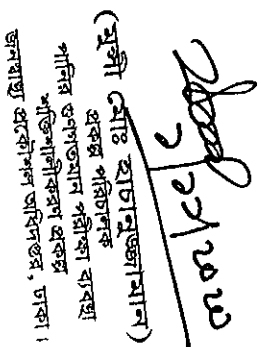 (মুন্সী মোঃ হাচানুজ্জামান)
প্রকল্প পরিচালক
পানির গুণগতমান পরীক্ষা ব্যবস্থা
শক্তিশালীকরণ প্রকল্প
জনস্বাস্থ্য প্রকৌশল অধিদপ্তর, ঢাকা।